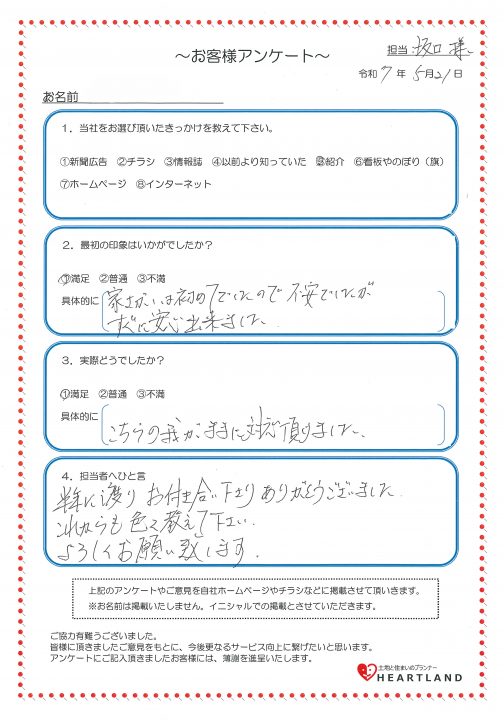 ～お客様アンケート～
担当：坂口 様
令和 7 年 5月21日
お名前
1．当社をお選び頂いたきっかけを教えて下さい。
①新聞広告 ②チラシ ③情報誌 ④以前より知っていた ⑤紹介 ⑥看板やのぼり（旗）
⑦ホームページ ⑧インターネット
2．最初の印象はいかがでしたか？
①満足 ②普通 ③不満
具体的に
家さがしは初めてでしたので 不安でしたが
すぐに安心出来ました。
3．実際どうでしたか？
①満足 ②普通 ③不満
具体的に
こちらの我がままに対応頂けました。
4．担当者へひと言
半年に渡り お付き合い下さりありがとうございました。
これからも色々教えて下さい。
よろしくお願い致します。
上記のアンケートやご意見を自社ホームページやチラシなどに掲載させて頂いきます。
※お名前は掲載いたしません。イニシャルでの掲載とさせていただきます。
ご協力有難うございました。
皆様に頂きましたご意見をもとに、今後更なるサービス向上に繋げたいと思います。
アンケートにご記入頂きましたお客様には、薄謝を進呈いたします。
土地と住まいのプランナー
HEARTLAND